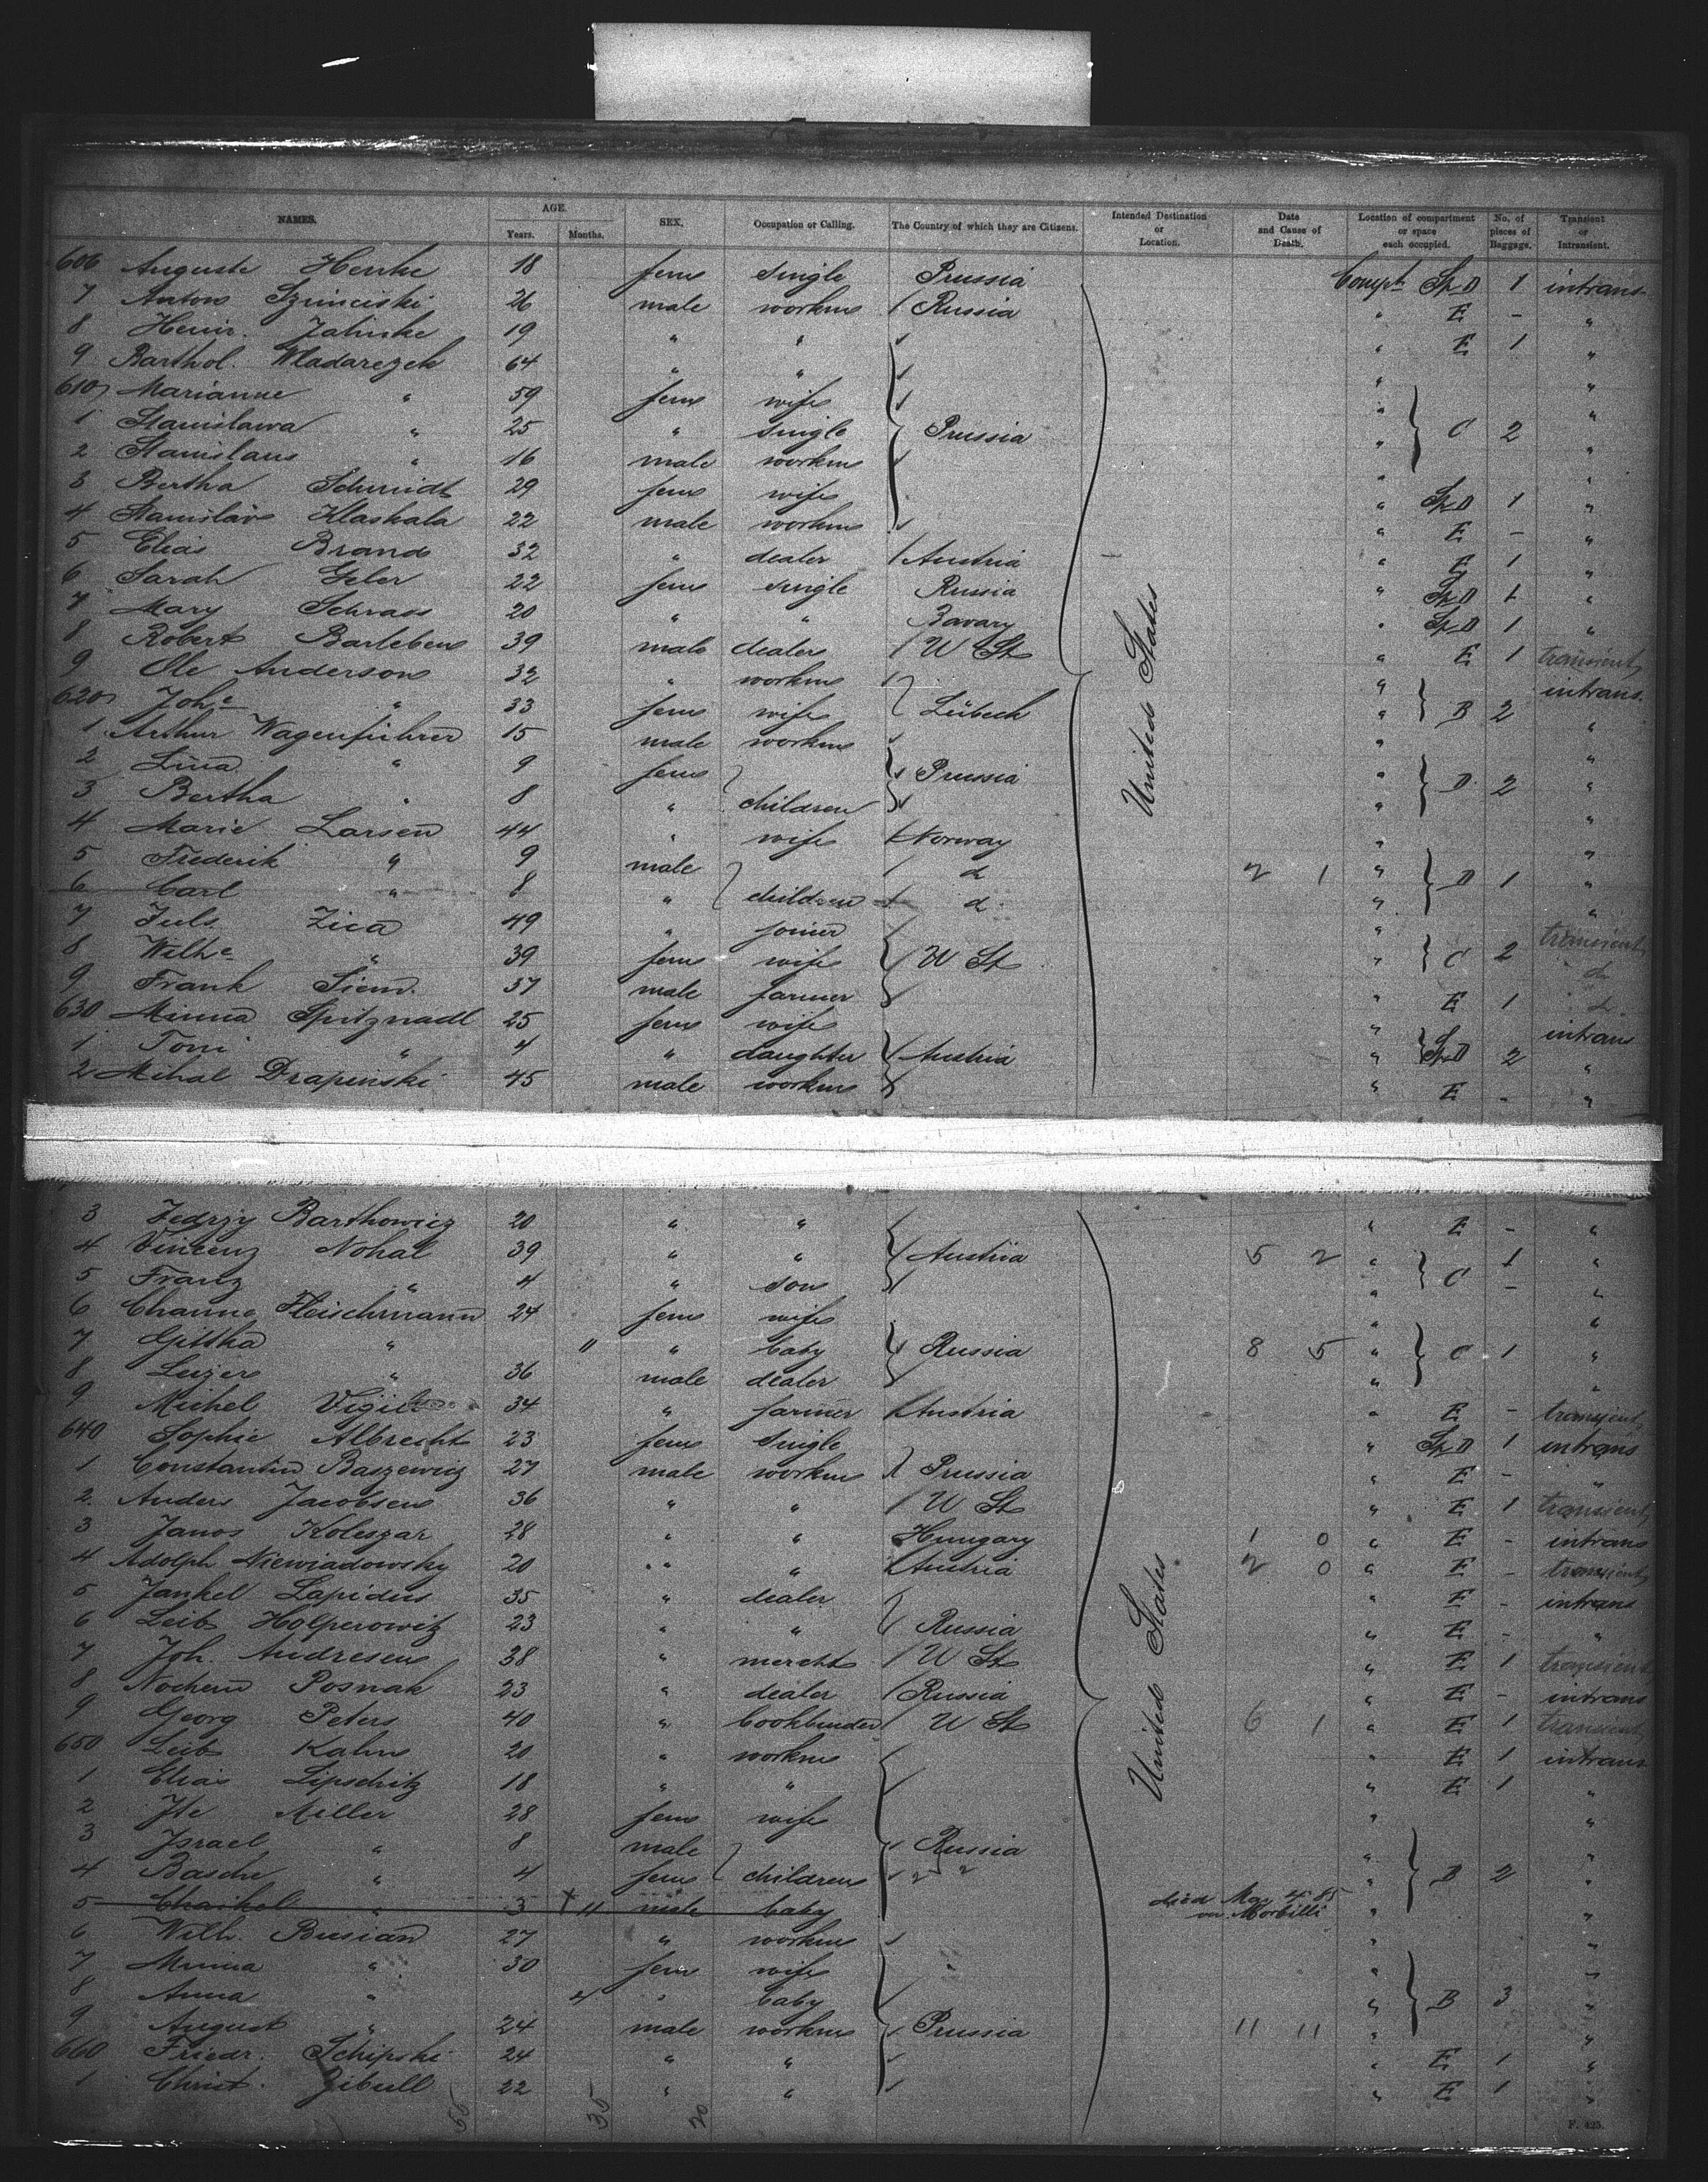 NAMES. AGE. Years. Months. SEX. Occupation or Calling. The Country of which they are Citizens. Intended Destination or Location. Date and Cause of Death. Location of compartment or space each occupied. No. of pieces of Baggage. Transient or Intransient.
606 Auguste Henke 18 fem single Prussia Compt Sp. D 1 intrans
7 Anton 26 male workm / Russia " E - "
8 Heinr. Jahnke 19 " " " E 1 "
9 Barthol. Wladarezek 64 " " " "
610 Marianne " 59 fem wife " "
1 Stanislawa " 25 " single Prussia " C 2 "
2 Stanislaus " 16 male workm " "
3 Bertha Schmidt 29 fem wife " Sp. D 1 "
4 Stanislav Klaskala 22 male workm " E - "
5 Elias Brand 32 " dealer / Austria " E 1 "
6 Sarah Geler 22 fem single Russia " Sp. D 1 "
7 Mary 20 " " Bavary " Sp. D 1 "
8 Robert Barleben 39 male dealer / U St " E 1 transient
9 Ole Anderson 32 " workm " intrans.
620 Johe " 33 fem wife Lübeck " B 2 "
1 Arthur Wagenführer 15 male workm " "
2 Lina " 9 fem Prussia " D 2 "
3 Bertha " 8 " children " "
4 Marie Larsen 44 " wife Norway " "
5 Frederik " 9 male d 2 1 " D 1 "
6 Carl " 8 " children d " "
7 Juls. Zica 49 " joiner " transient
8 Wilhe " 39 fem wife U St " C 2 d
9 Frank Siem. 37 male farmer " E 1 d
630 Minna Spitznadl 25 fem wife " intrans
1 Toni " 4 " daughter Austria " Sp. D 2 "
2 Mihal Drapinski 45 male workm " E - "
United States
3 Jedrzy Barthowicz 20 " " " E - "
4 Vincenz Nohal 39 " " Austria 5 2 " C 1 "
5 Franz " 4 " son " - "
6 Channe Fleischmann 24 fem wife " "
7 Gittha " 11 " baby Russia 8 5 " C 1 "
8 Leizer " 36 male dealer " "
9 Michel 34 " farmer / Austria " E - transient
640 Sophie Albrecht 23 fem single " Sp. D 1 intrans
1 Constantin Baszewicz 27 male workm Prussia " E - "
2. Anders Jacobsen 36 " " / U St " E 1 transient
3 Janos Koleszar 28 " " Hungary 1 0 " E - intrans
4 Adolph Niewiadowsky 20 " " / Austria 2 0 " E - transient
5 Jankel Lapidus 35 " dealer " E - intrans
6 Leib Holperowitz 23 " " Russia " E - "
7 Joh. Andresen 38 " mercht / U St " E 1 transient
8 Nochem Posnak 23 " dealer / Russia " E - intrans
9 Georg Peters 40 " bookbinder / U St 6 1 " E 1 transient
650 Leib Kahn 20 " workm " E 1 intrans
1 Elias Lipschitz 18 " " " E 1 "
2 Ite Miller 28 fem wife " "
3 Israel " 8 male Russia " "
4 Basche " 4 fem children " B 2 "
5 Chaikel " 3 11 male baby died Mar 4 85 on Morbilli " "
6 Wilh. Busian 27 " workm " "
7 Minna " 30 fem wife " "
8 Anna " 4 " baby " B 3 "
9 August " 24 male workm Prussia 11 11 " "
660 Friedr. Schipski 24 " " " E 1 "
1 Christ. Zibull 22 " " " E 1 "
United States
55 35 20
F. 425.